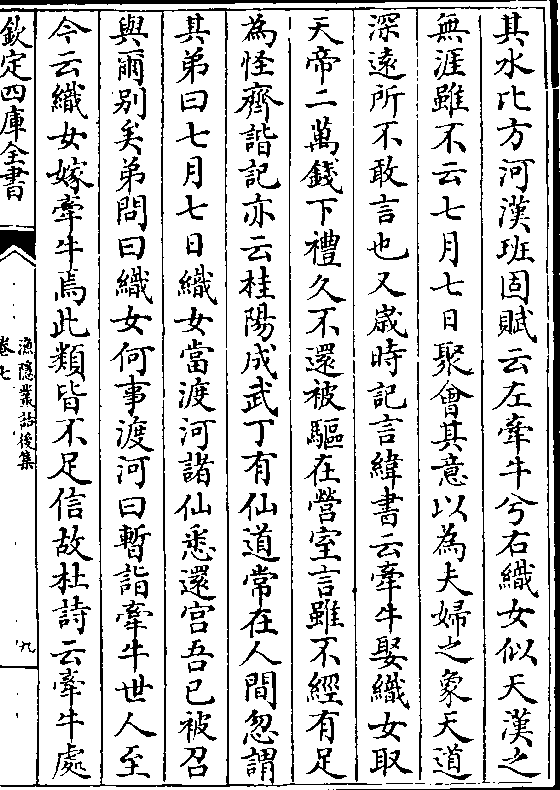 其水比方河漢班固賦云左牽牛兮右織女似天漢之
無涯雖不云七月七日聚會其意以為夫婦之象天道
深遠所不敢言也又歲時記言緯書云牽牛娶織女取
天帝二萬錢下禮久不還被驅在營室言雖不經有足
為怪齊諧記亦云桂陽成武丁有仙道常在人間忽謂
其弟曰七月七日織女當渡河諸仙悉還宮吾已被召
與爾別矣弟問曰織女何事渡河曰暫詣牽牛世人至
今云織女嫁牽牛焉此類皆不足信故杜詩云牽牛處
欽定四庫全書
漁隱叢話後集
卷七
九